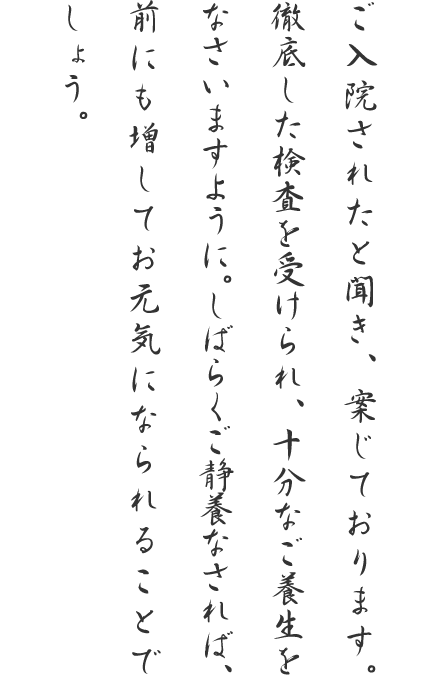 ご入院されたと聞き、案じております。
徹底した検査を受けられ、十分なご養生を
なさいますように。しばらくご静養なされば、
前にも増してお元気になられることで
しょう。